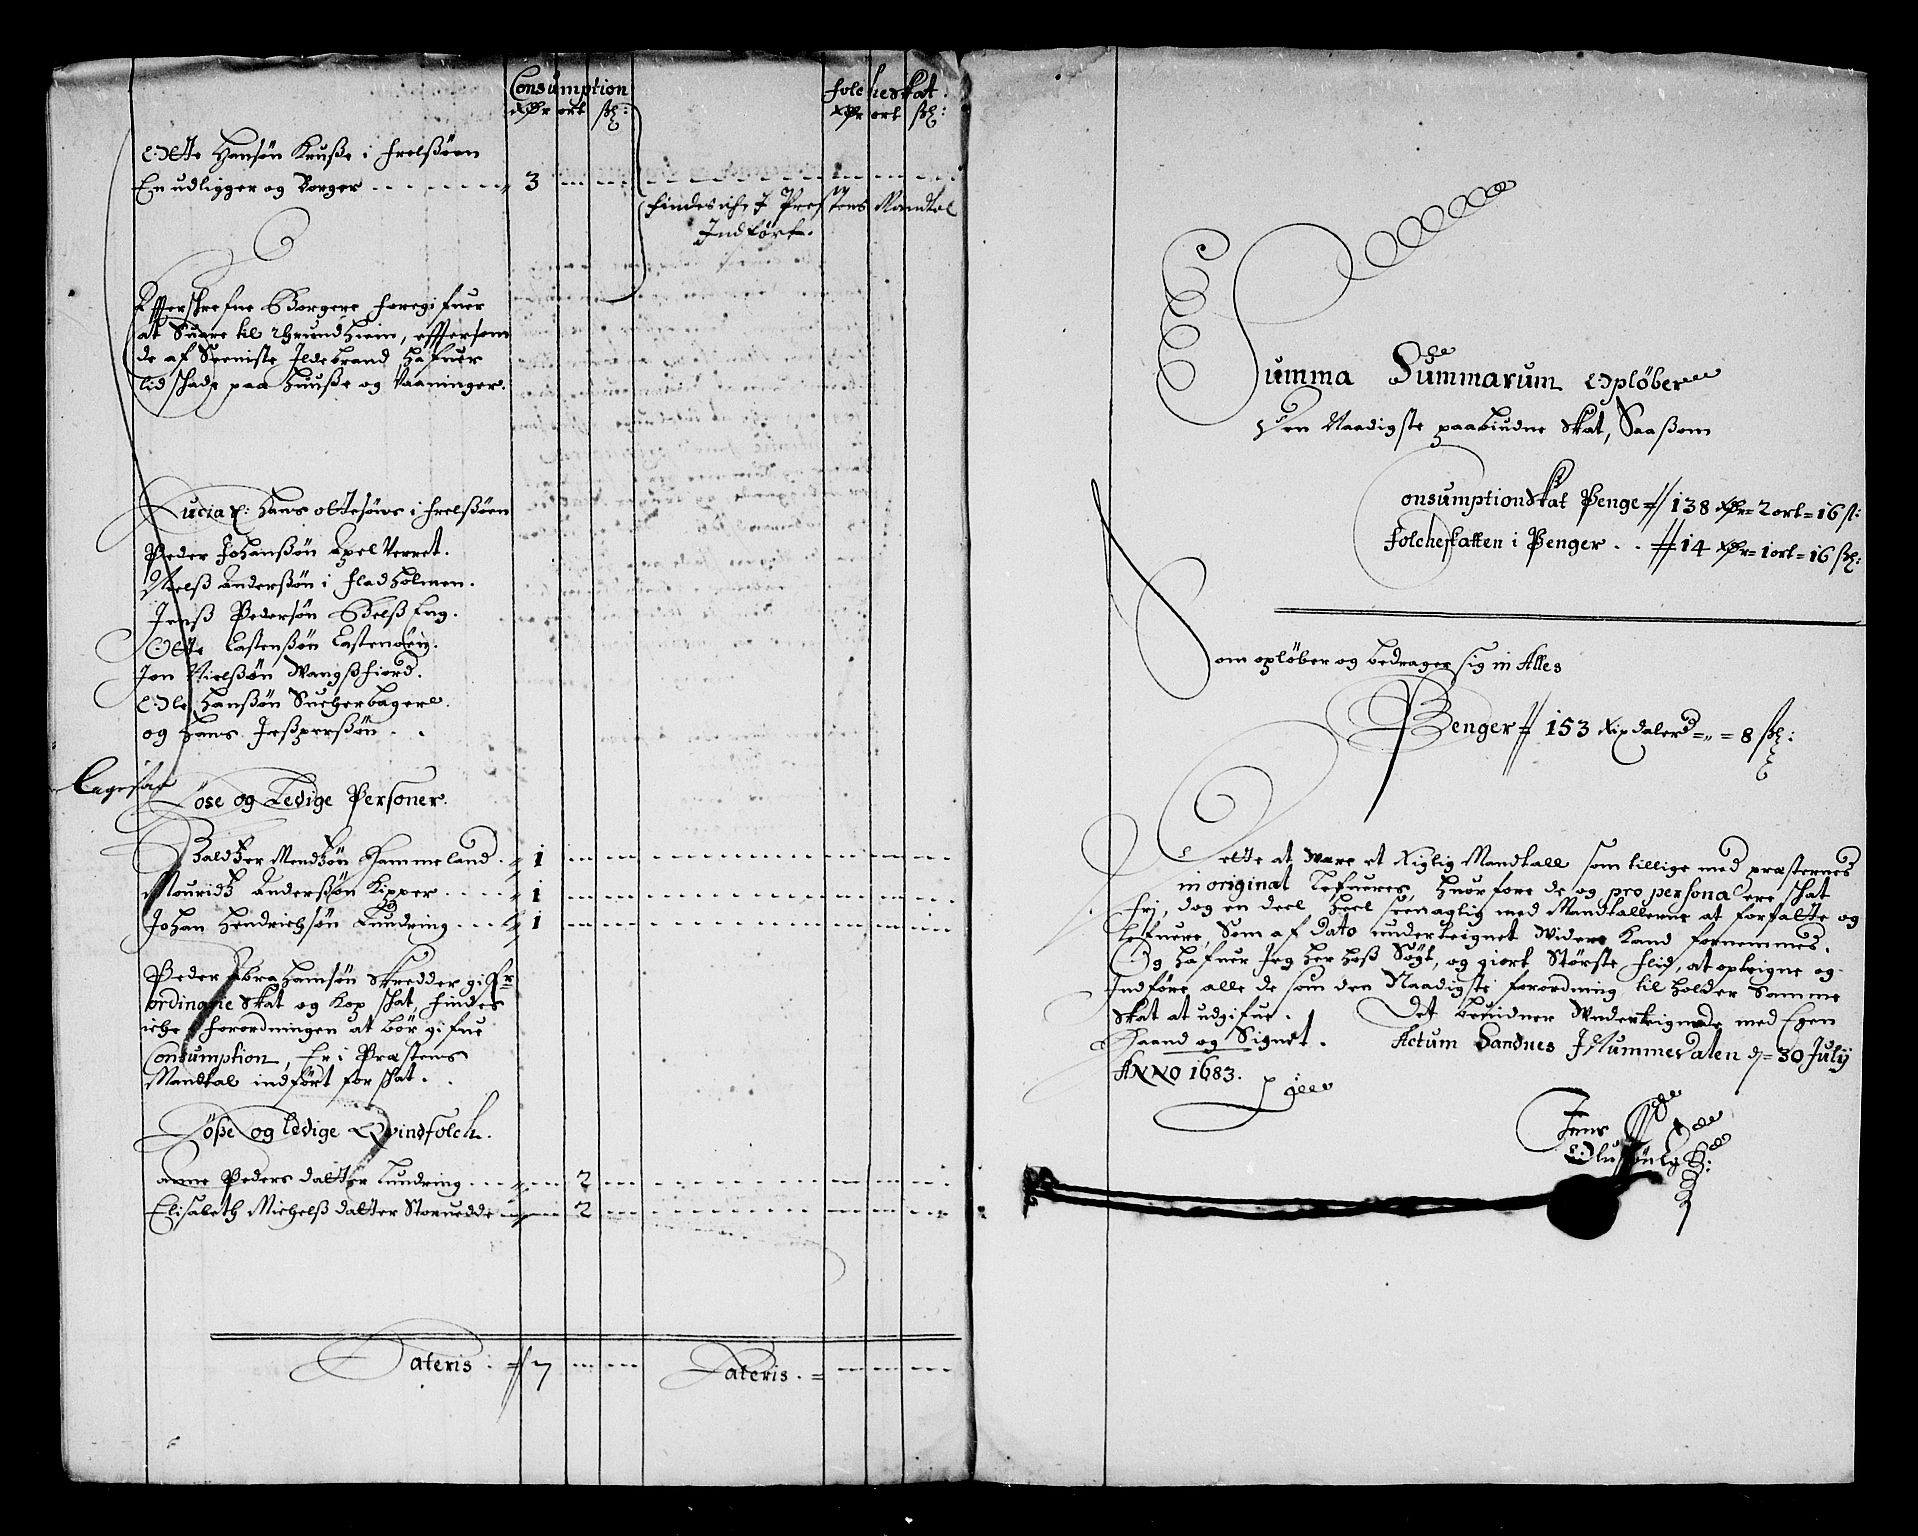 Consumption
Folcheskat.
Rdr ort ßk:
Rdr ort ßk:
Otte Hansøn Krusse i Frelssøen
En udligger og Borger 3
Findes iche J Prestens Mandtal
Indført.
Effterskrefne Borgere foregifuer
at Suare til Thrundhiem, efftersom
de af Seeniste Ildebrand hafuer
lid schade paa Huusse og Vaaninger.
Lucia Hans Ottesøns i Frelssøen
Peder Johanssøn Apelverret.
Nielss Anderssøn i Fladholmen.
Jenss Pedersøn Gielss Eng.
Otte Castenssøn Castenøen.
Jon Nielssøn Wangssfiord.
Ole Hanssøn Sucherbager.
og Hans Jesperssøn
Løse og Ledige Personer.
Baldtzer Mendtzøn Hammeland 1
Mouridtz Anderssøn Kipper 1
Johan Hendrichsøn Lundring 1
Peder Abrahamsøn Skredder gifr
ordinarie Skat og Kop schat, findes
iche forordningen at bør gifue
Consumption, Er i Præstens
Mandtal indført for schat.
Løsse og ledige Qvindfolch.
Anne Peders datter Lundring 2
Elisabeth Michelss datter Storuedde 2
Lateris 7 Lateris
Summa Summarum Opløber
den Naadigste paabiudne Skat, Saassom
Consumptionskat Penge 138 Rdr 2 ort 16 ß:
Folcheskatten i Penger 14 Rdr 1 ort 16 ßk:
Som opløber og bedrager sig in Alles
Penger 153 Rixdaler 8 ßk:
Dette at were et Rigtig Mandtall som tillige med præsternes
in originat lefueres, Huorfore de og pro persona ere schat
frj, dog en deel heel seenaglig med Mandtallerne at forfatte og
lefuere, Som af dato undertegnet Widere Kand fornemmes.
Og hafuer Jeg her hoss Søgt, og giort Største flid, at opteigne og
Indføre alle de som den Naadigste forordning til holder Samme
Skat at udgifue. Det beuidner Underteignede med Egen
Haand og Signet. Actum Sandnes J Nummedalen d. 30 July
ANNO 1683.
Jens